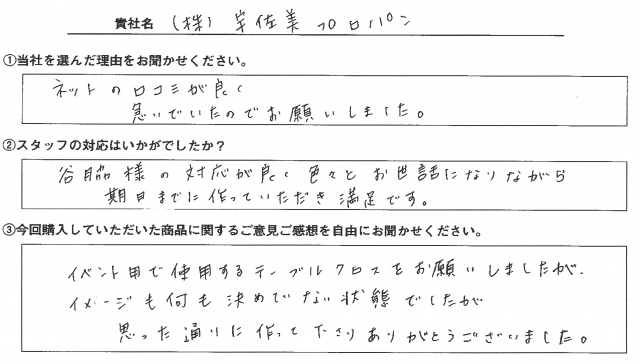 貴社名 (株) 宇佐美プロパン
①当社を選んだ理由をお聞かせください。
ネットの口コミが良く
急いでいたのでお願いしました。
②スタッフの対応はいかがでしたか？
谷脇様の対応が良く色々とお世話になりながら
期日までに作っていただき満足です。
③今回購入していただいた商品に関するご意見ご感想を自由にお聞かせください。
イベント用で使用するテーブルクロスをお願いしましたが、
イメージも何も決めていない状態でしたが
思った通りに作って下さりありがとうございました。